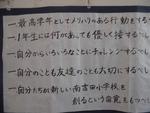 一最高学年としてメリハリのある行動をする
一1年生には何があっても優しく接する
一自分からいろいろなことにチャレンジする
一自分のことも友達のことも大切にする
一自分たちが新しい南吉田小学校を
創るという自覚をもつ